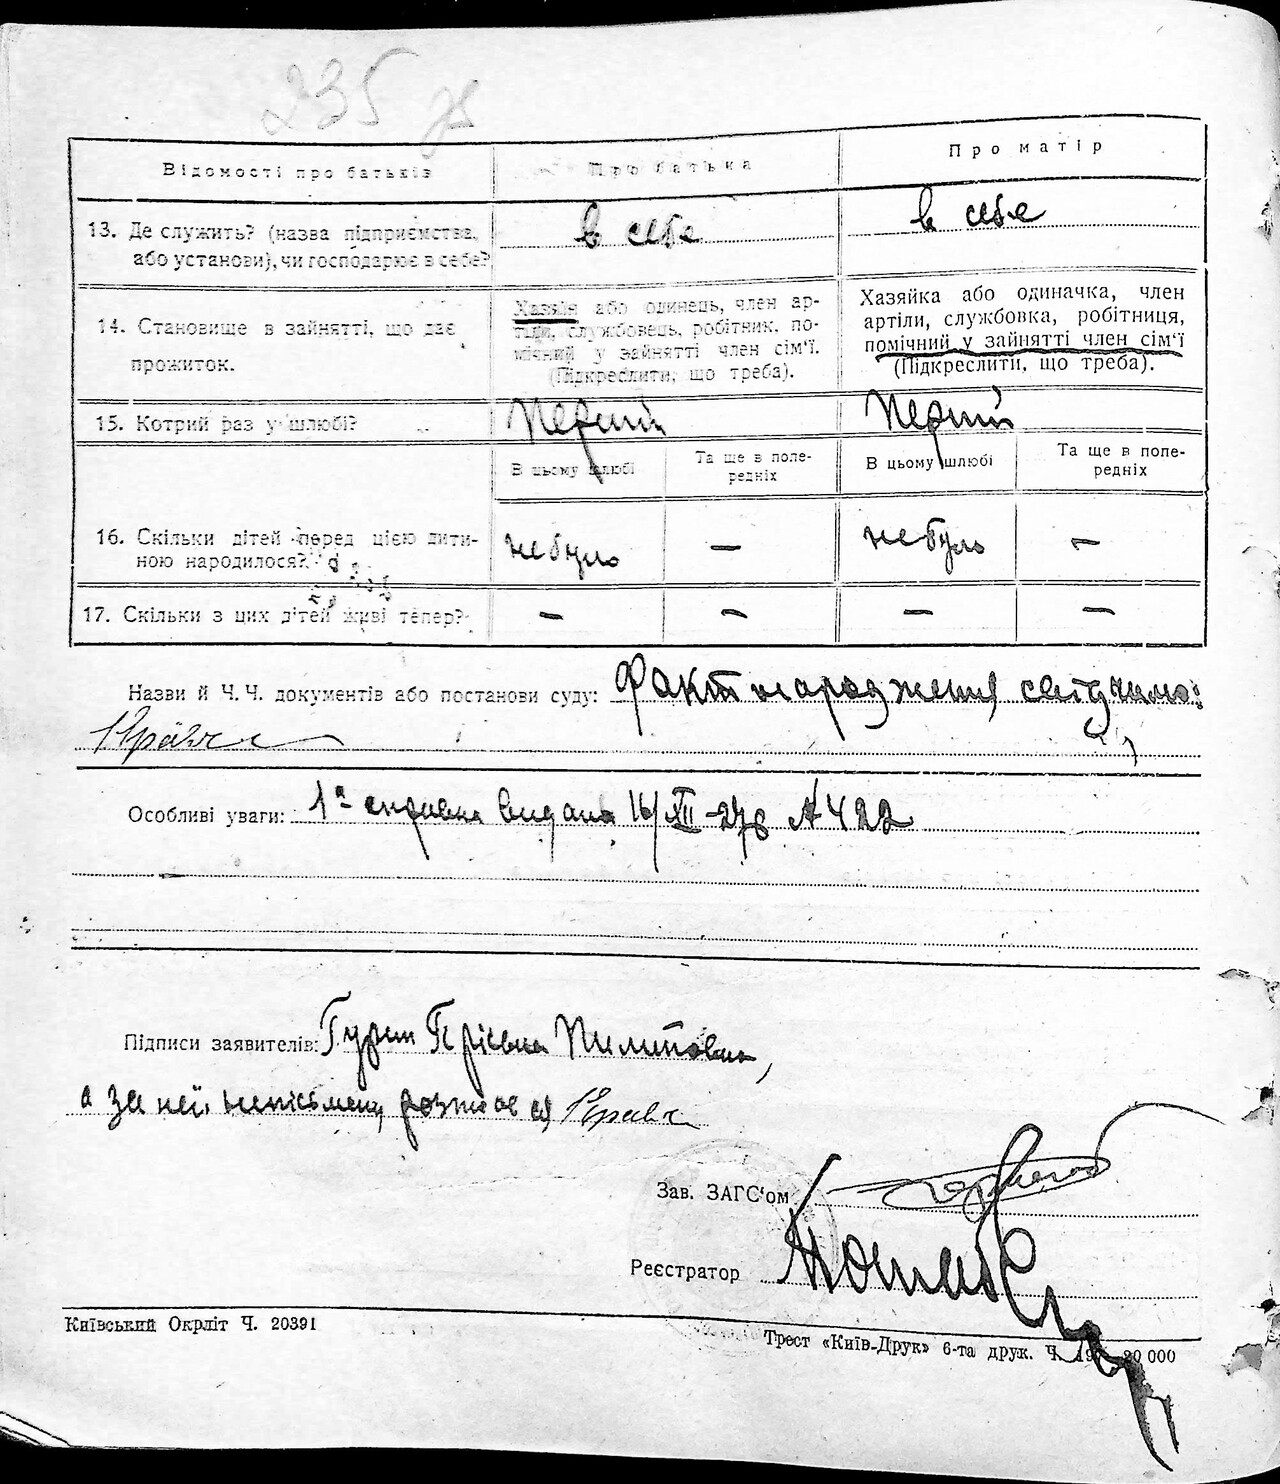 235 зв
Відомості про батьків
Про батька
Про матір
13. Де служить? (назва підприємства,
або установи), чи господарює в себе?
в себе
в себе
14. Становище в зайнятті, що дає
прожиток.
Хазяїн або одинець, член ар-
тіли, службовець, робітник, по-
мічний у зайнятті член сім'ї.
(Підкреслити, що треба).
Хазяйка або одиначка, член
артіли, службовка, робітниця,
помічний у зайнятті член сім'ї
(Підкреслити, що треба).
15. Котрий раз у шлюбі?
Перший
Перший
В цьому шлюбі
Та ще в попе-
редніх
В цьому шлюбі
Та ще в попе-
редніх
16. Скільки дітей перед цією дити-
ною народилося?
не було
—
не було
—
17. Скільки з цих дітей живі тепер?
—
—
—
—
Назви й Ч. Ч. документів або постанови суду: Факт народження свідчимо:
Особливі уваги: 1а справка видана 16/XII-27р № 422
Підписи заявителів:
а за неї, неписьмену, розписався
Зав. ЗАГС'ом
Реєстратор
Київський Окрліт Ч. 20391
Трест «Київ-Друк» 6-та друк. Ч.